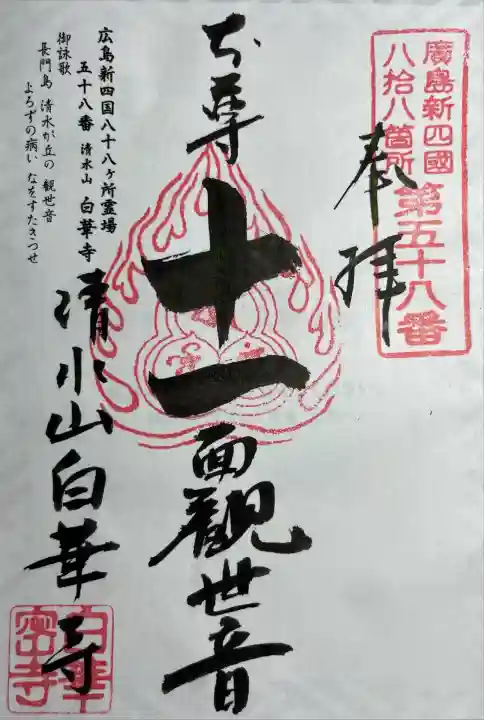 廣島新四國
八拾八箇所
第五十八番
奉拝
本尊 十一面觀世音
広島新四国八十八ヶ所霊場
五十八番 清水山 白華寺
御詠歌
長門島 清水が丘の 観世音
よろずの病い なをすたきつせ
清水山白華寺
白華
密寺